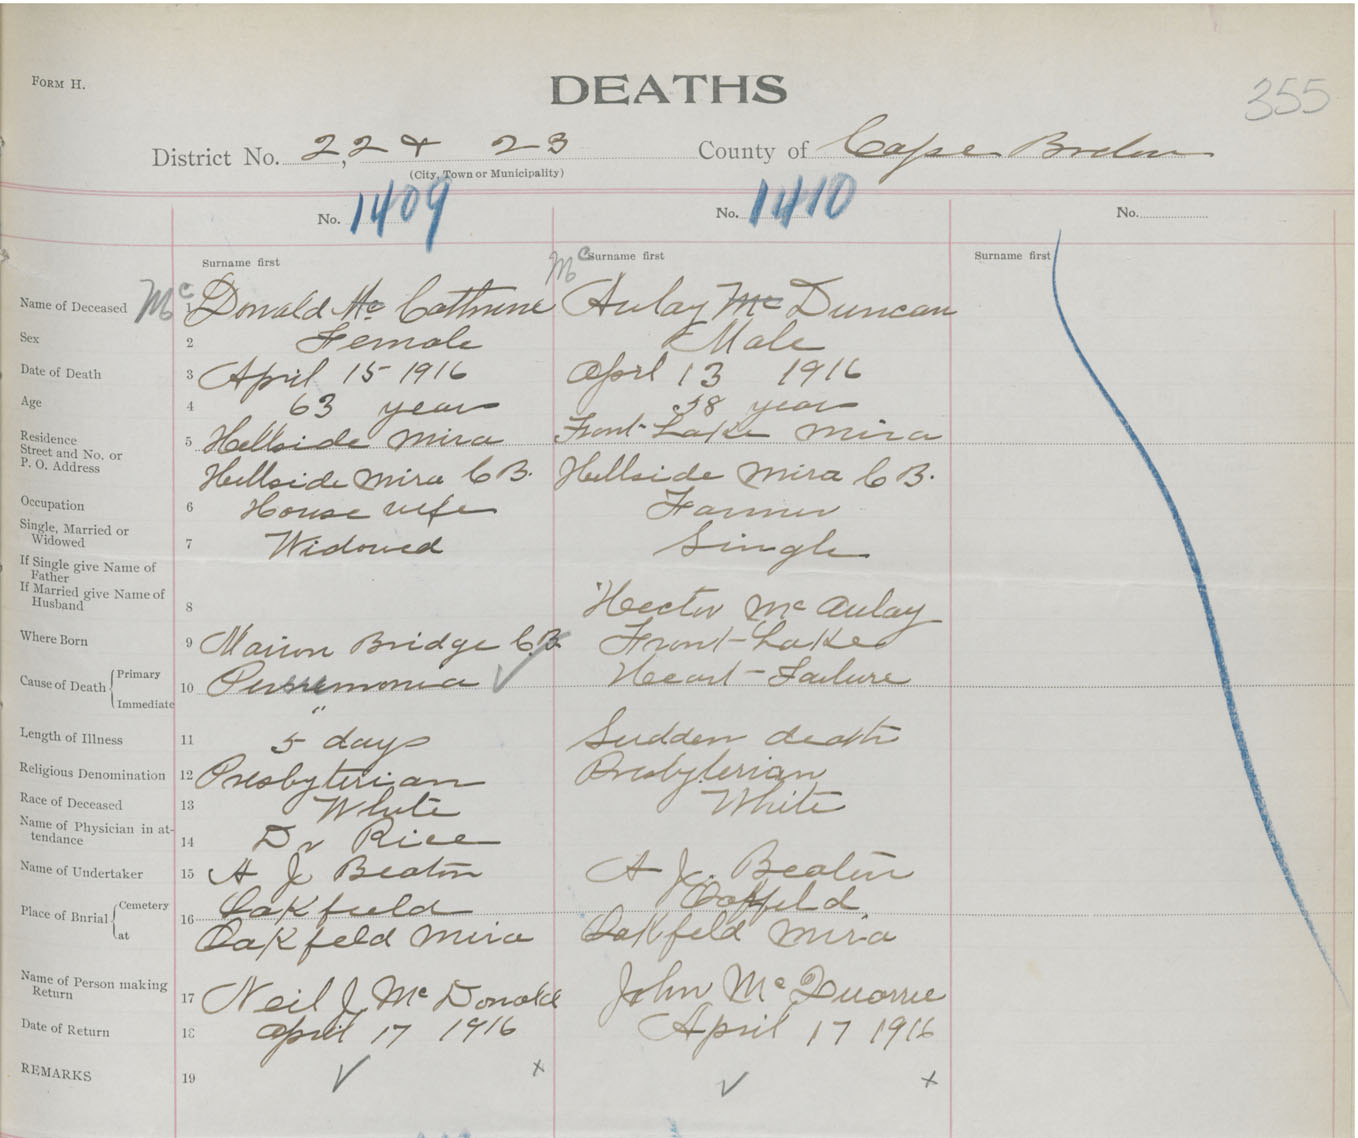 FORM H.
DEATHS
355
District No. 22 + 23 County of Cape Breton
(City, Town or Municipality)
No. 1409 No. 1410 No.
Surname first Surname first Surname first
Name of Deceased 1 Mc Donald Mc Cathrine Mc Aulay Mc Duncan
Sex 2 Female Male
Date of Death 3 April 15 1916 Aprl 13 1916
Age 4 63 years 58 years
Residence Street and No. or P. O. Address 5 Hillside Mira Front Lake Mira
Hillside Mira C B. Hillside Mira C B.
Occupation 6 House wife Farmer
Single, Married or Widowed 7 Widowed Single
If Single give Name of Father
If Married give Name of Husband 8 Hector Mc Aulay
Where Born 9 Marion Bridge C.B. Front Lake
Cause of Death { Primary 10 Pneumonia Heart Failure
Immediate "
Length of Illness 11 5 days Sudden death
Religious Denomination 12 Presbyterian Presbyterian
Race of Deceased 13 White White
Name of Physician in attendance 14 Dr Rice
Name of Undertaker 15 A J Beaton A J. Beaton
Place of Burial { Cemetery 16 Oakfield Oakfeld
at Oakfeld Mira Oakfeld Mira
Name of Person making Return 17 Neil J Mc Donald John Mc Quarrie
Date of Return 18 April 17 1916 April 17 1916
REMARKS 19